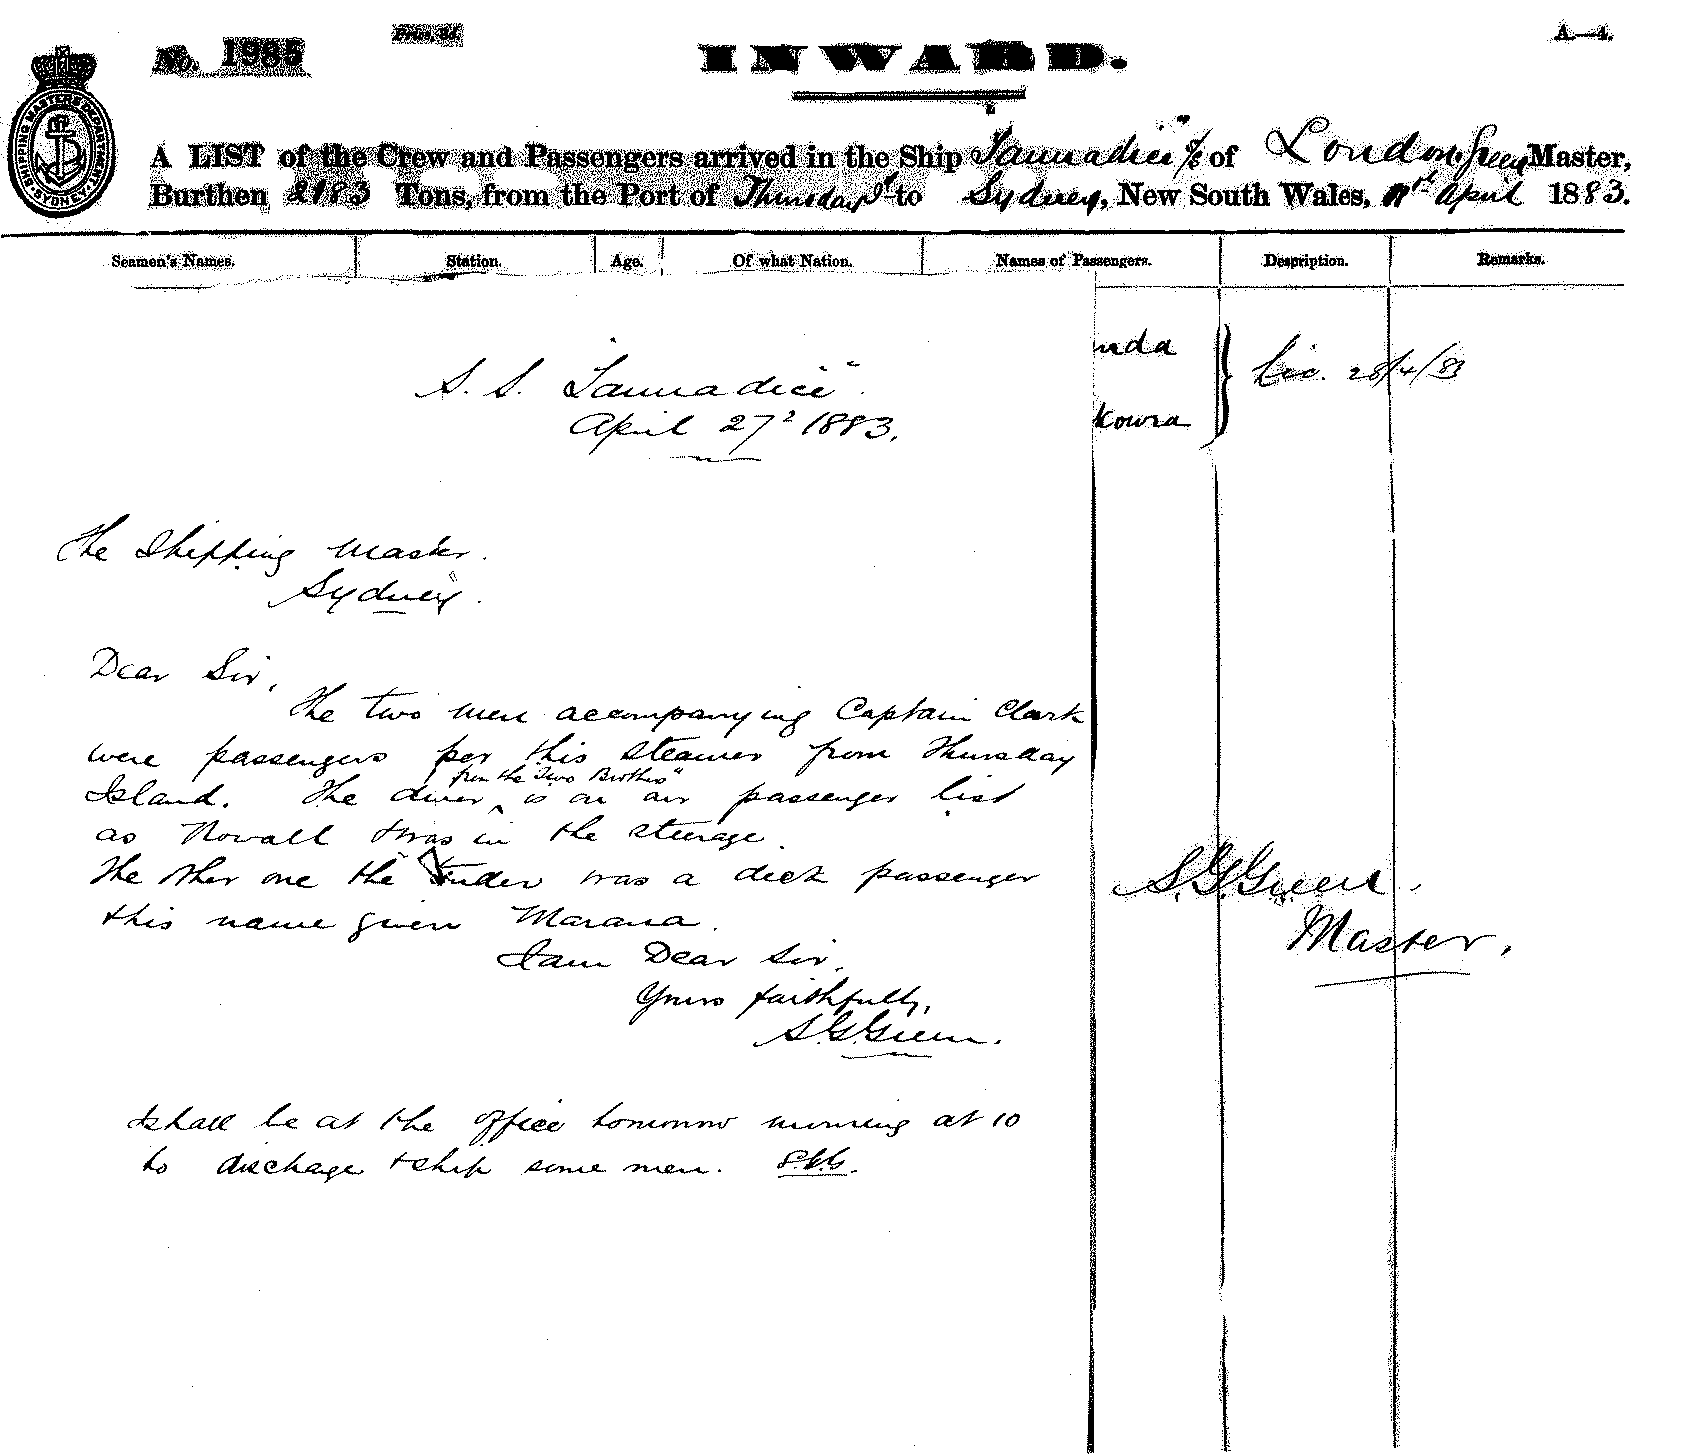 No. 1985
Price 3d.
A—4.
INWARD.
SHIPPING MASTERS DEPARTMENT SYDNEY
A LIST of the Crew and Passengers arrived in the Ship Tannadice s/s of London, Green Master,
Burthen 2183 Tons, from the Port of Thursday Id to Sydney, New South Wales, April 1883.
Seamen's Names. Station. Age. Of what Nation. Names of Passengers. Description. Remarks.
nda
kowra
Lic. 28/4/83
S. S. "Tannadice".
April 27th 1883.
The Shipping Master.
Sydney.
Dear Sir,
The two men accompanying Captain Clark
were passengers per this steamer from Thursday
Island. The diver from the "Two Brothers" is on our passenger list
as Nowall & was in the steerage.
The other one the Tender was a deck passenger
this name given Marana.
I am Dear Sir,
Yours faithfully,
S.G. Green.
I shall be at the office tomorrow morning at 10
to dischage & ship some men. S.G.G.
S.G. Green.
Master.